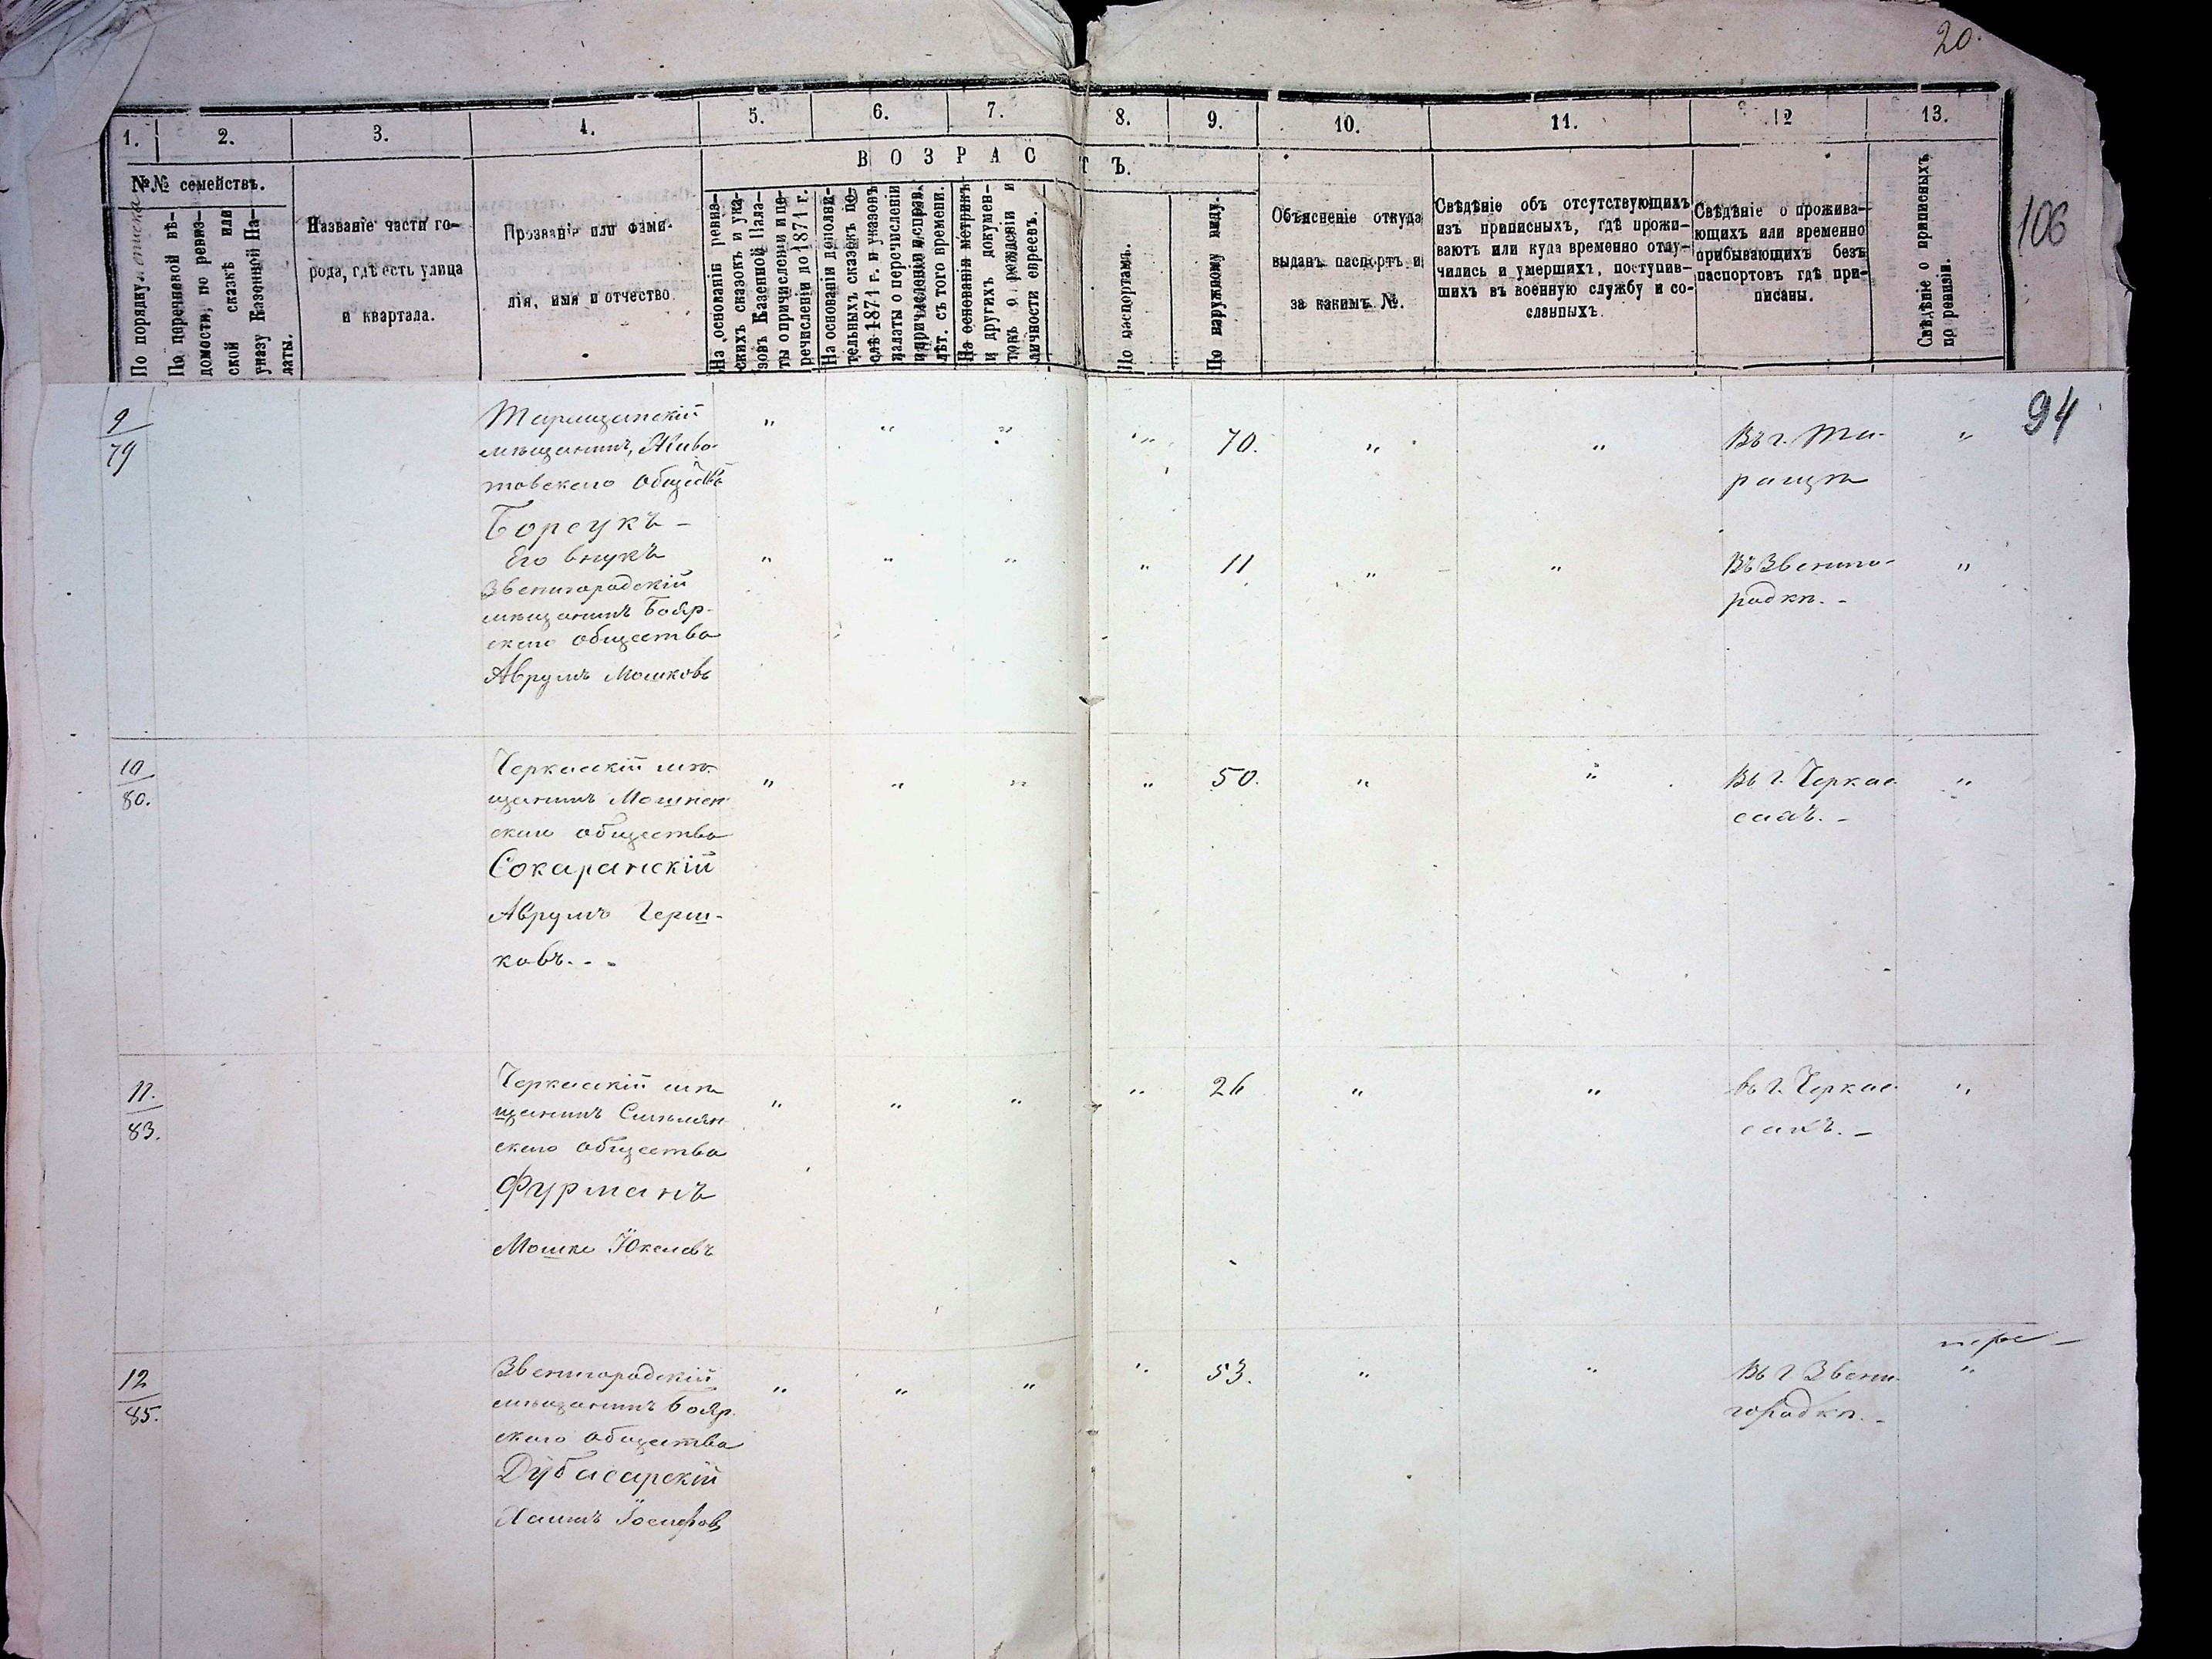 20.
106
94
1.
2.
3.
4.
5.
6.
7.
8.
9.
10.
11.
12
13.
№№ семействъ.
ВОЗРАСТЪ.
По порядку
По перечневой вѣ-
домости, по ревиз-
ской сказкѣ или
указу Казенной Па-
латы.
Названіе части го-
рода, гдѣ есть улица
и квартала.
Прозваніе или фами-
лія, имя и отчество.
На основаніе ревиз-
скихъ сказокъ и ука-
зовъ Казенной Пала-
ты о причисленіи и пе-
речисленіи до 1871 г.
На основаніи дополни-
тельныхъ сказокъ по-
слѣ 1871 г. и указовъ
палаты о перечисленіи
и причисленіи и справ.
лѣт. съ того времени.
На основаніи метрикъ
и другихъ докумен-
товъ о рожденіи и
личности евреевъ.
По паспортамъ.
По наружному виду.
Объясненіе откуда
выданъ паспортъ и
за какимъ №.
Свѣдѣніе объ отсутствующихъ
изъ приписныхъ, гдѣ прожи-
ваютъ или куда временно отлу-
чились и умершихъ, поступив-
шихъ въ военную службу и со-
сланныхъ.
Свѣдѣніе о прожива-
ющихъ или временно
прибывающихъ безъ
паспортовъ гдѣ при-
писаны.
Свѣдѣніе о приписныхъ
по ревизіи.
9
79
Таращанскій
мѣщанинъ, Живо-
товскаго Общества
Борсукъ -
" " " " 70. " " Въ г. Та-
ращѣ "
Его внукъ
Звенигородскій
мѣщанинъ Бояр-
скаго общества
Аврумъ Мошковъ
" " " " 11 " " Въ Звениго-
родкѣ. - "
10
80.
Черкаскій мѣ-
щанинъ Мошнен-
скаго общества
Сокаранскій
Аврумъ Герш-
ковъ. - -
" " " " 50. " " Въ г. Черкас-
сахъ. - "
11.
83.
Черкаскій мѣ-
щанинъ Смѣлян-
скаго общества
Фурманъ
Мошко Юкелевъ
" " " " 26 " " въ г. Черкас-
сахъ. - "
12
85.
Звенигородскій
мѣщанинъ Бояр-
скаго общества
Дубасарскій
Хаимъ Іосифовъ
" " " " 53. " " Въ г. Звени-
городкѣ. - "